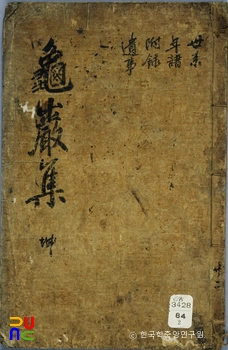 世系
年譜
附錄
遺事
龜巖集 坤
3428
64
© 한국학중앙연구원